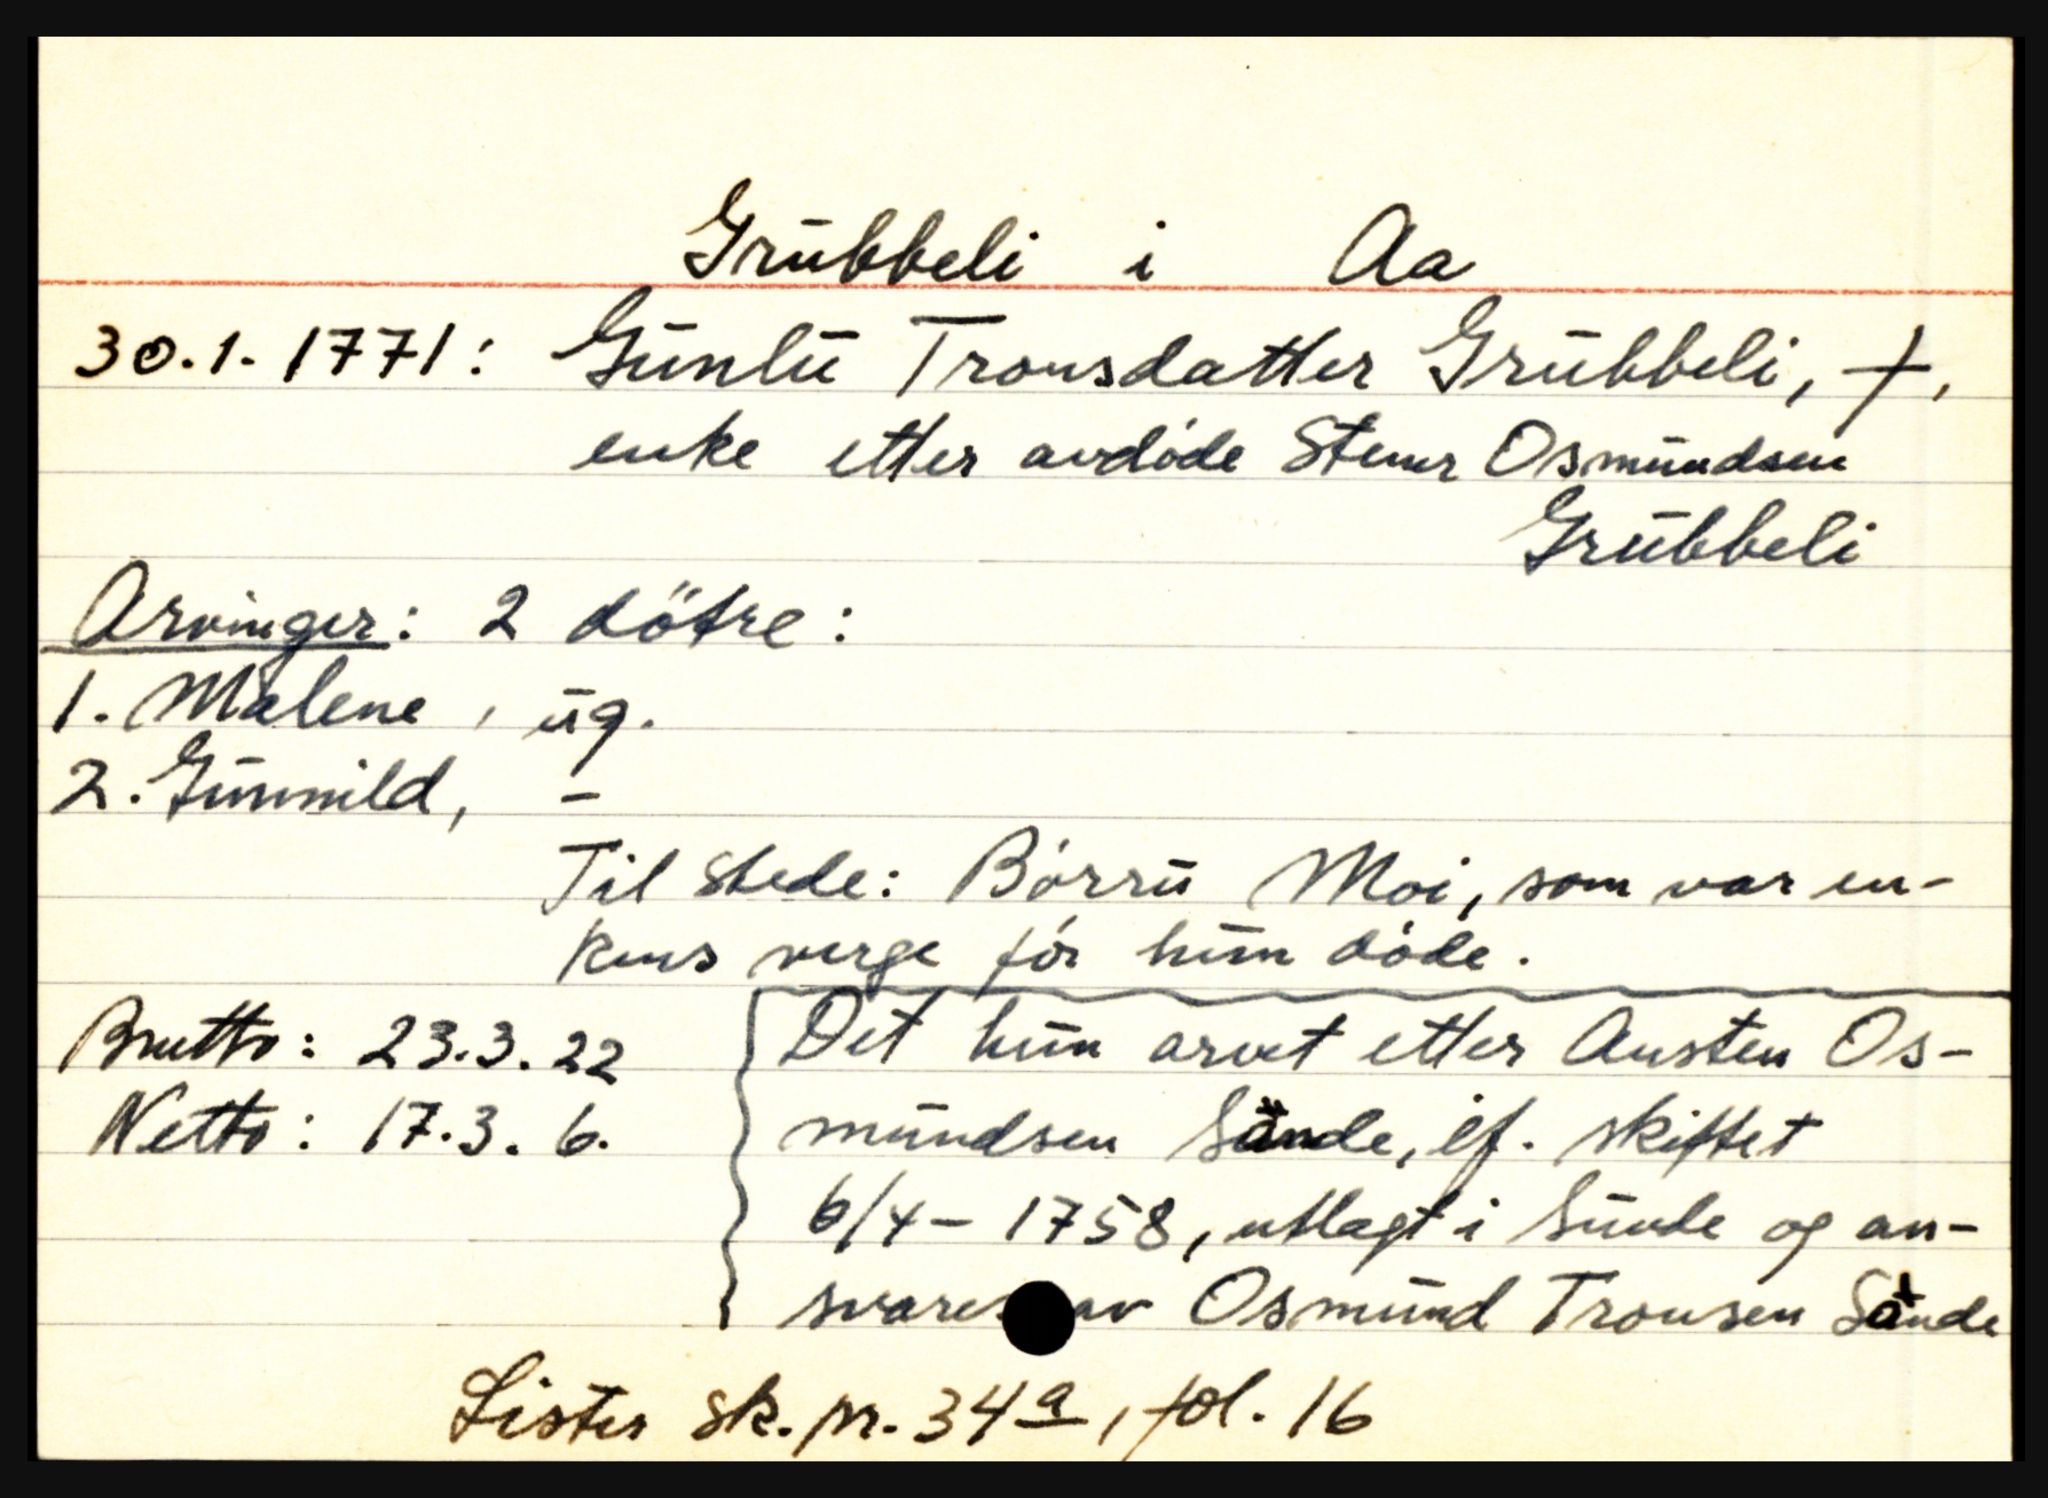 Grūbbeli i Aa
30.1.1771: Gūnlū Tronsdatter Grūbbeli, †,
enke etter avdøde Stener Osmūndsen
Grūbbeli
Arvinger: 2 dötre:
1. Malene, ūg.
2. Gūnnild, -
Til stede: Børrū Moi, som var en-
kens verge før hūn døde.
Brutto: 23.3.22
Netto: 17.3.6.
Det hūn arvet etter Austen Os-
mūndsen Sånde, jf. skiftet
6/4-1758, utlagt i Sūnde og an-
svares av Osmūnd Tronsen Sånde
Lister sk.pr. 34a, fol. 16